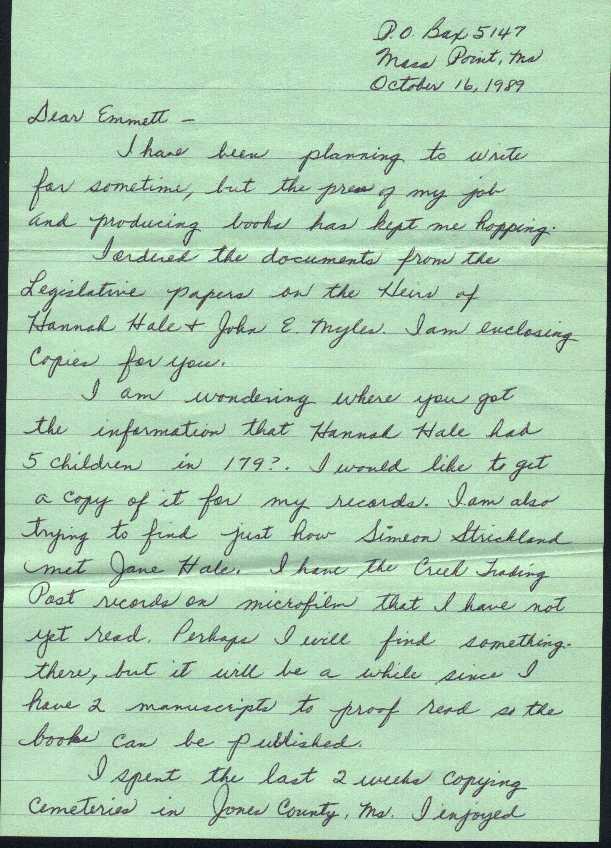 P.O. Box 5147
Moss Point, Ms
October 16, 1989
Dear Emmett –
I have been planning to write
for sometime, but the press of my job
and producing books has kept me hopping.
I ordered the documents from the
Legislative papers on the Heirs of
Hannah Hale & John E. Myles. I am enclosing
Copies for you.
I am wondering where you got
the information that Hannah Hale had
5 children in 179?. I would like to get
a copy of it for my records. I am also
trying to find just how Simeon Strickland
met Jane Hale. I have the Creek Trading
Post records on microfilm that I have not
yet read. Perhaps I will find something
there, but it will be a while since I
have 2 manuscripts to proof read so the
books can be published.
I spent the last 2 weeks copying
Cemeteries in Jones County, Ms. I enjoyed